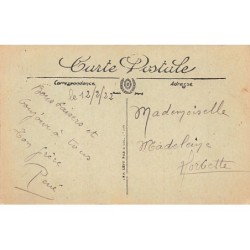 Carte Postale
Correspondance
Adresse
le 12/8/32
Bons baisers et
bonjour à tous
Ton frère
René
Mademoiselle
Madeleine